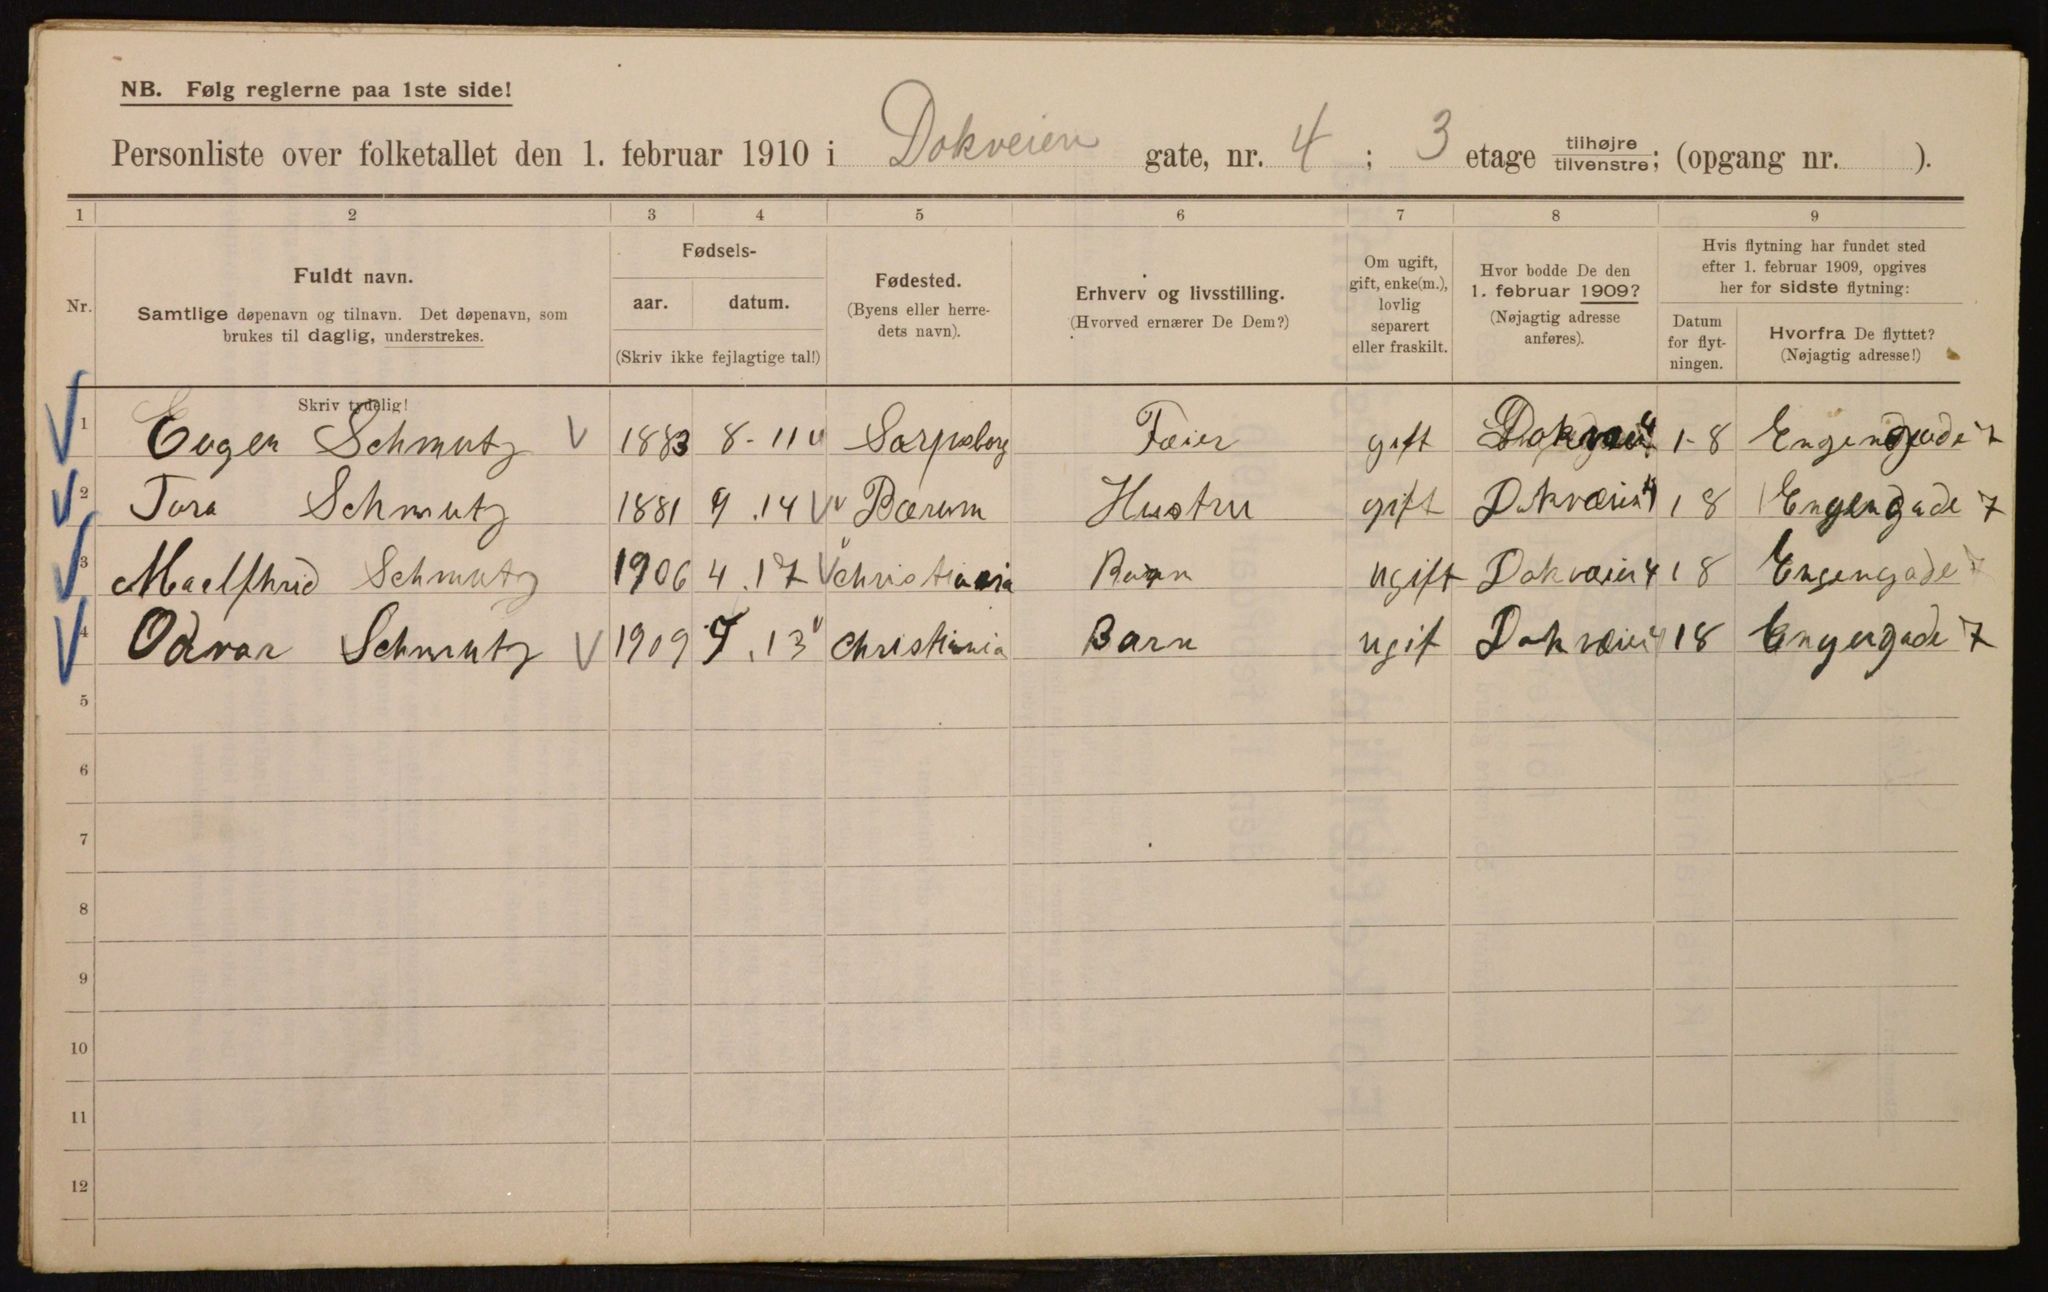 NB. Følg reglerne paa 1ste side!
Personliste over folketallet den 1. februar 1910 i Dokveien gate, nr. 4 ; 3 etage tilhøjre/tilvenstre; (opgang nr. ).
1 2 3 4 5 6 7 8 9
Nr.
Fuldt navn.
Samtlige døpenavn og tilnavn. Det døpenavn, som
brukes til daglig, understrekes.
Fødsels-
aar. datum.
(Skriv ikke fejlagtige tal!)
Fødested.
(Byens eller herre-
dets navn).
Erhverv og livsstilling.
(Hvorved ernærer De Dem?)
Om ugift,
gift, enke(m.),
lovlig
separert
eller fraskilt.
Hvor bodde De den
1. februar 1909?
(Nøjagtig adresse
anføres).
Hvis flytning har fundet sted
efter 1. februar 1909, opgives
her for sidste flytning:
Datum
for flyt-
ningen.
Hvorfra De flyttet?
(Nøjagtig adresse!)
Skriv tydelig!
1 Eugen Schmutz 1883 8-11 Sarpsborg Feier gift 4 1-8 Engengade 7
2 Tora Schmutz 1881 9.14 Bærum Hustru gift Dokvæien 4 1 8 Engengade 7
3 Maelfhrid Schmutz 1906 4.17 Christiania Barn ugift Dokvæien 4 1 8 Engengade 7
4 Odvar Schmutz 1909 7.13 Christiania Barn ugif Dokvæien 4 1 8 Engengade 7
5
6
7
8
9
10
11
12